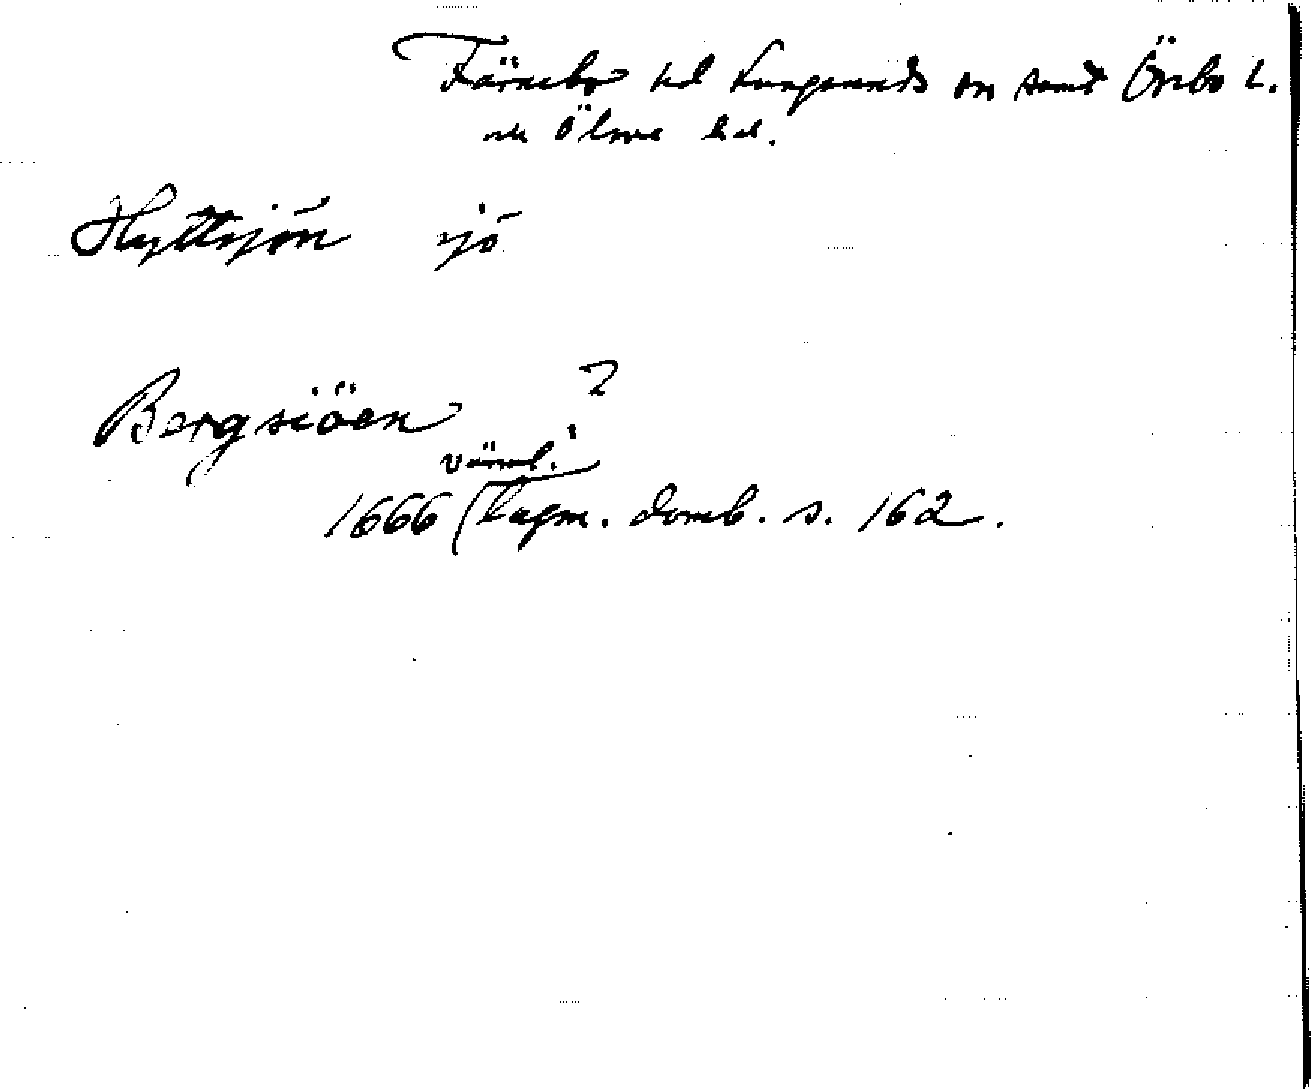 Färnebo hd Lungsunds sn samt Örebo l.
och Ölme hd.
Hyttsjön sjö
Bergsiöen ?
värml.
1666 ( Lagm. domb. s. 162.